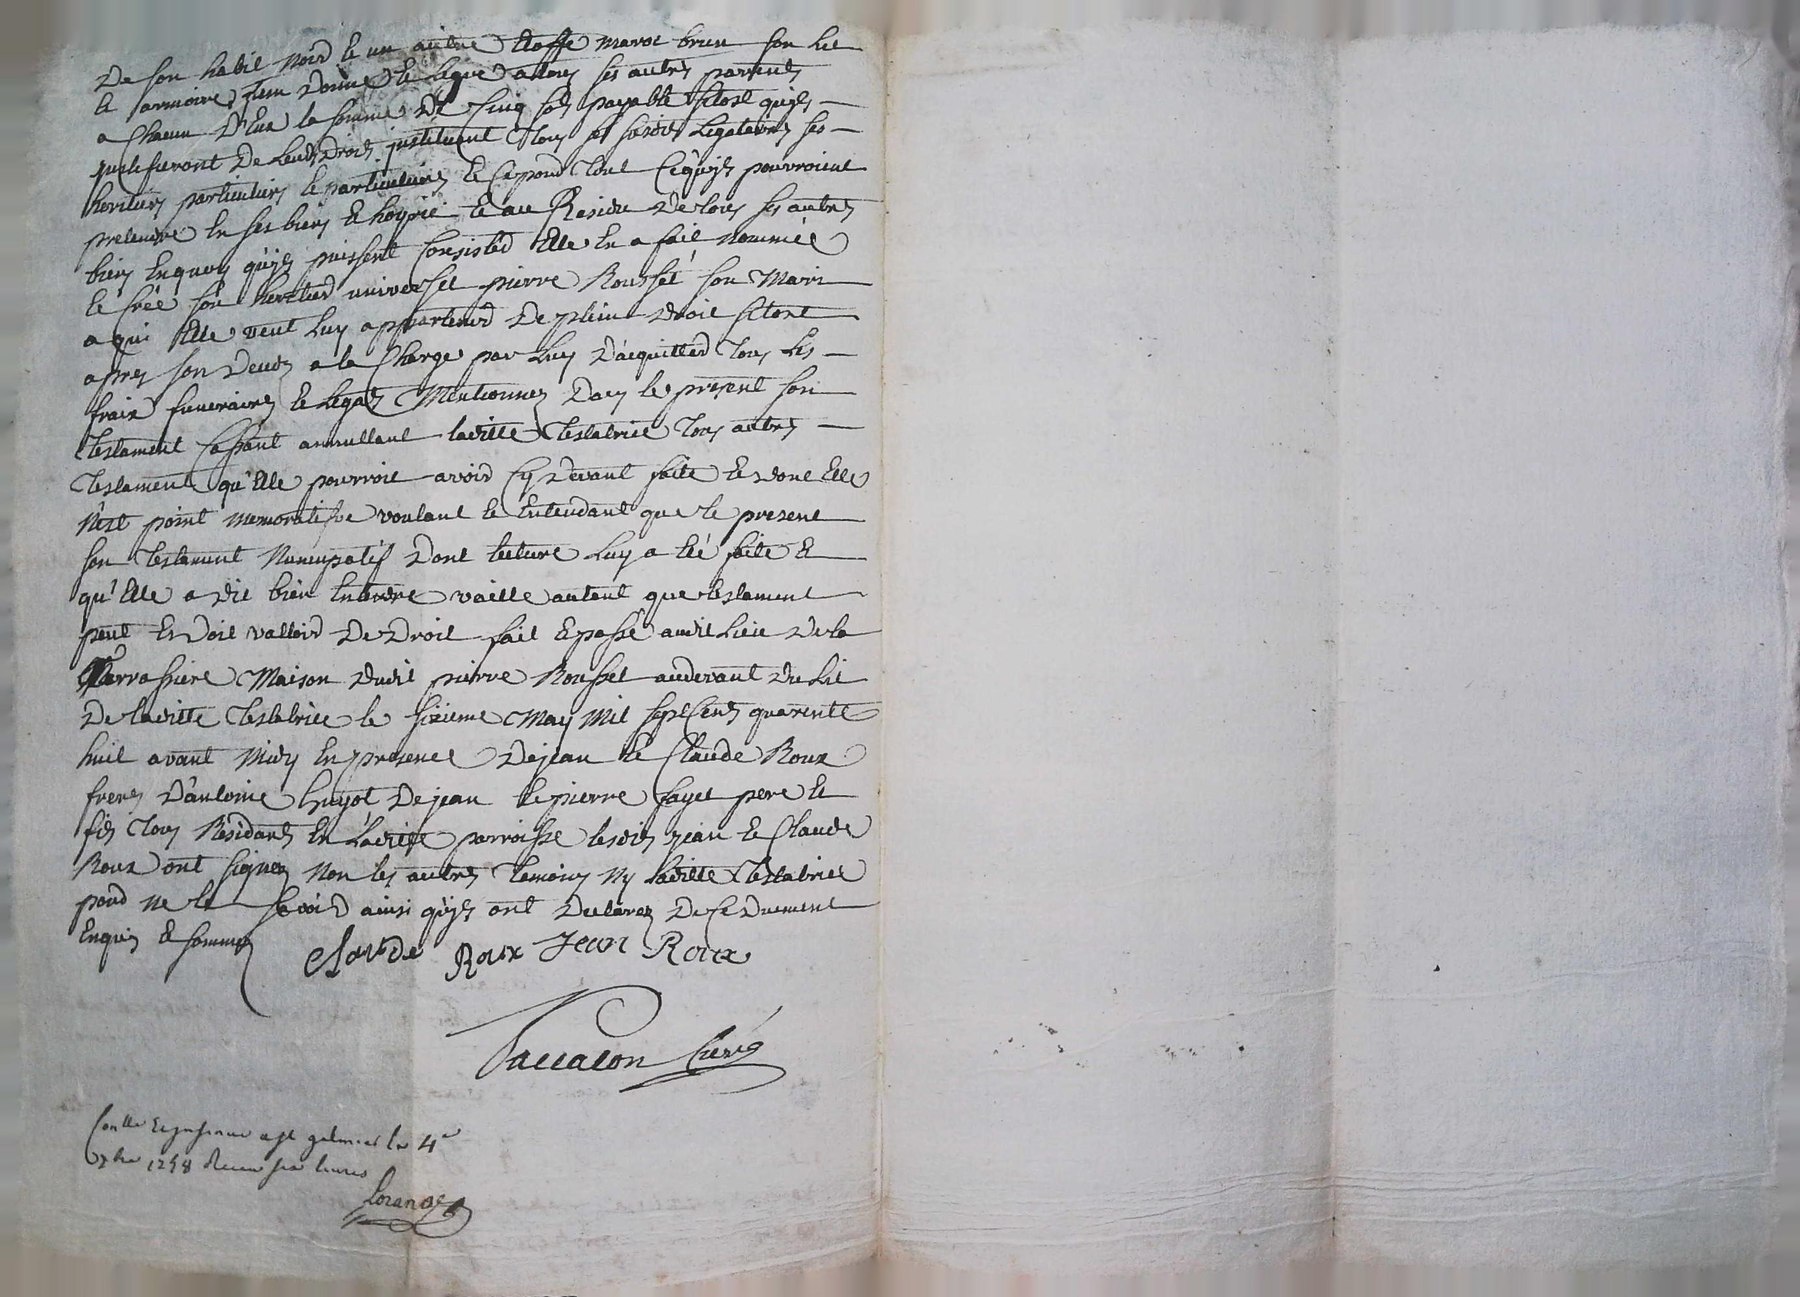 De son habit noir et un autre etoffe maroc brun son lit
et armoire, Item donne et legue a tous ses autres parents
a Chacun D'Eux la somme De Cinq sols payable sitost qu'jls
justifieront De Leurs Droits jnstituant Tous ses susdits Legataires ses
heritiers particuliers et particulieres et Ce pour Tout Ce qu'jls pourroient
pretendre En ses biens et hoyrie et au Residu De tous ses autres
biens En quoy qu'jls puissent Consister Elle En a fait nommé
et Créé son heritier universel pierre Rousset son Mari
a qui Elle veut Luy appartenir De plein Droit sitost
apres son Deces a la Charge par Luy D'acquitter Tous Les
fraix funeraires et Legats Mentionnes Dans le present son
Testament Cassant annullant laditte Testatrice Tous autres
Testament qu'Elle pourroit avoir Cy Devant faits et dont Elle
n'est point memorative voulant et Entendant que le present
son Testament Nuncupatif Dont lecture Luy a Eté faite et
qu'Elle a dit bien Entendre vaille autant que testament
peut et Doit valloir De Droit fait et passé audit Lieu De la
maison dudit pierre Rousset audevant du Lit
De laditte Testatrice le sixieme May Mil sept Cents quarente
huit avant Midy En presence De jean et Claude Roux
freres D'antoine Guyot De jean et pierre fayet pere et
fils Tous Residants En Laditte parroisse lesdits jean et Claude
Roux ont signez Non les autres Temoins Ny laditte Testatrice
pour ne le scavoir ainsi qu'jls ont Declarez De Ce Duement
Enquis et sommez Claude Roux Jean Roux
Paccalon Curé
Conllé a st galmier le 4e
7bre 1748 Receu six livres